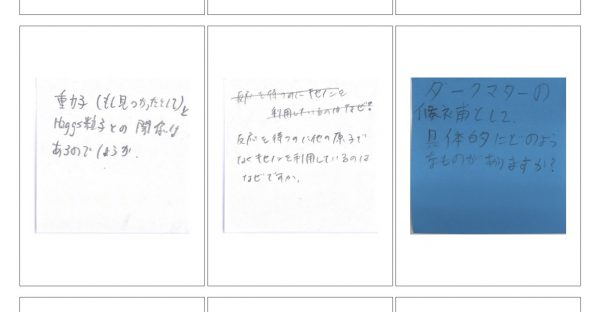 重力子(もし見つかったとして)と
Higgs粒子との関係は
あるのでしょうか.
反応を待つのにキセノンを
利用しているのはなぜ?
反応を待つのに他の原子で
なくキセノンを利用しているのは
なぜですか.
ダークマターの
候補として、
具体的にどのよう
なものがありますか?